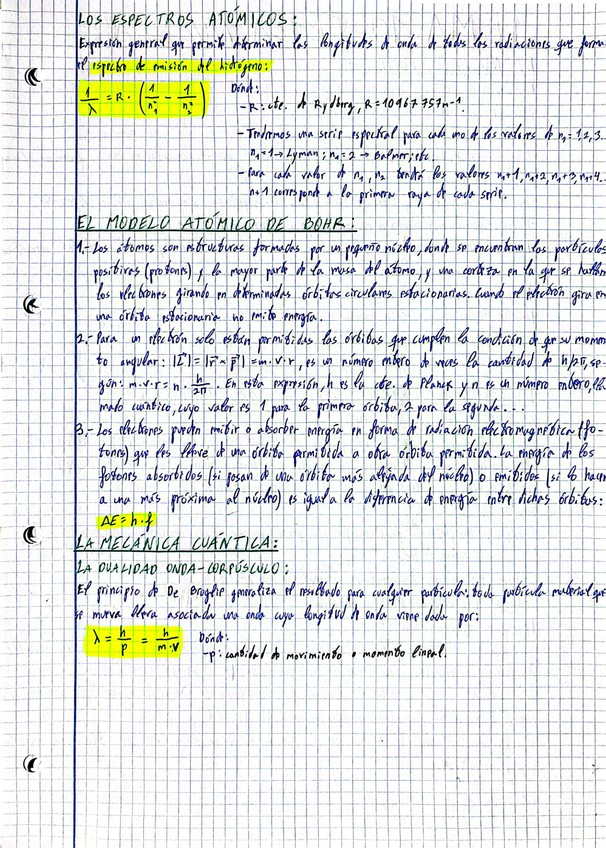 LOS ESPECTROS ATÓMICOS:
Expresión general que permite determinar las longitudes de onda de todas las radiaciones que forma
el espectro de emisión del hidrógeno:
1/λ = R · (1/n₁² - 1/n₂²) Dónde:
- R: cte. de Rydberg, R = 10967757m⁻¹.
- Tendremos una serie espectral para cada uno de los valores de n₁ = 1,2,3...
n₁ = 1 → Lyman; n₁ = 2 → Balmer; etc.
- Para cada valor de n₁, n₂ tendrá los valores n₁+1, n₁+2, n₁+3, n₁+4...
n+1 corresponde a la primera raya de cada serie.
EL MODELO ATÓMICO DE BOHR:
1.- Los átomos son estructuras formadas por un pequeño núcleo, donde se encuentran las partículas
positivas (protones) y la mayor parte de la masa del átomo, y una corteza en la que se hallan
los electrones girando en determinadas órbitas circulares estacionarias. Cuando el electrón gira en
una órbita estacionaria no emite energía.
2.- Para un electrón solo están permitidas las órbitas que cumplen la condición de que su momen
to angular: |L⃗| = |r⃗ × p⃗| = m·v·r, es un número entero de veces la cantidad de h/2π, se-
gún: m·v·r = n · h/2π. En esta expresión, h es la cte. de Planck y n es un número entero, lla
mado cuántico, cuyo valor es 1 para la primera órbita, 2 para la segunda...
3.- Los electrones pueden emitir o absorber energía en forma de radiación electromagnética (fo-
tones) que les lleve de una órbita permitida a otra órbita permitida. La energía de los
fotones absorbidos (si pasan de una órbita más alejada del núcleo) o emitidos (si lo hacen
a una más próxima al núcleo) es igual a la diferencia de energía entre dichas órbitas:
ΔE = h·f
LA MECÁNICA CUÁNTICA:
LA DUALIDAD ONDA-CORPÚSCULO:
El principio de De Broglie generaliza el resultado para cualquier partícula: toda partícula material que
se mueva lleva asociada una onda cuya longitud de onda viene dada por:
λ = h/p = h/m·v Dónde:
- p: cantidad de movimiento o momento lineal.